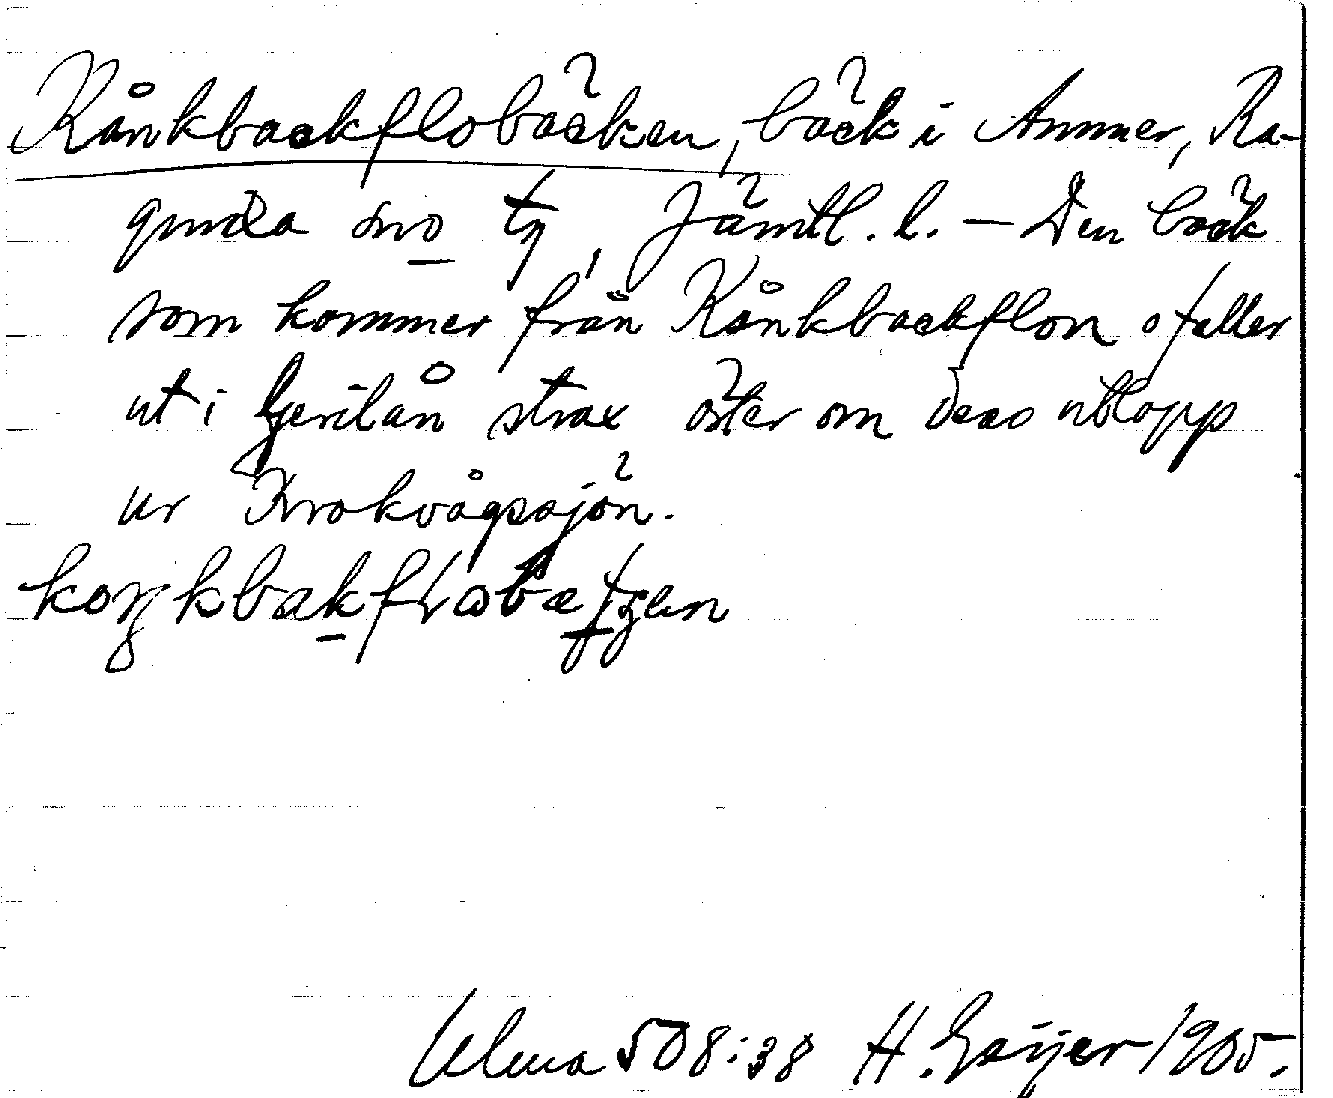 Kånkbackflobäcken, bäck i Ammer, Ra-
gunda sn o tg, Jämtl. l. – Den bäck
som kommer från Kånkbackflon o faller
ut i Gerilån strax öster om dess utlopp
ur Krokvågssjön.
Ulma 508:38 H. Geijer 1905.